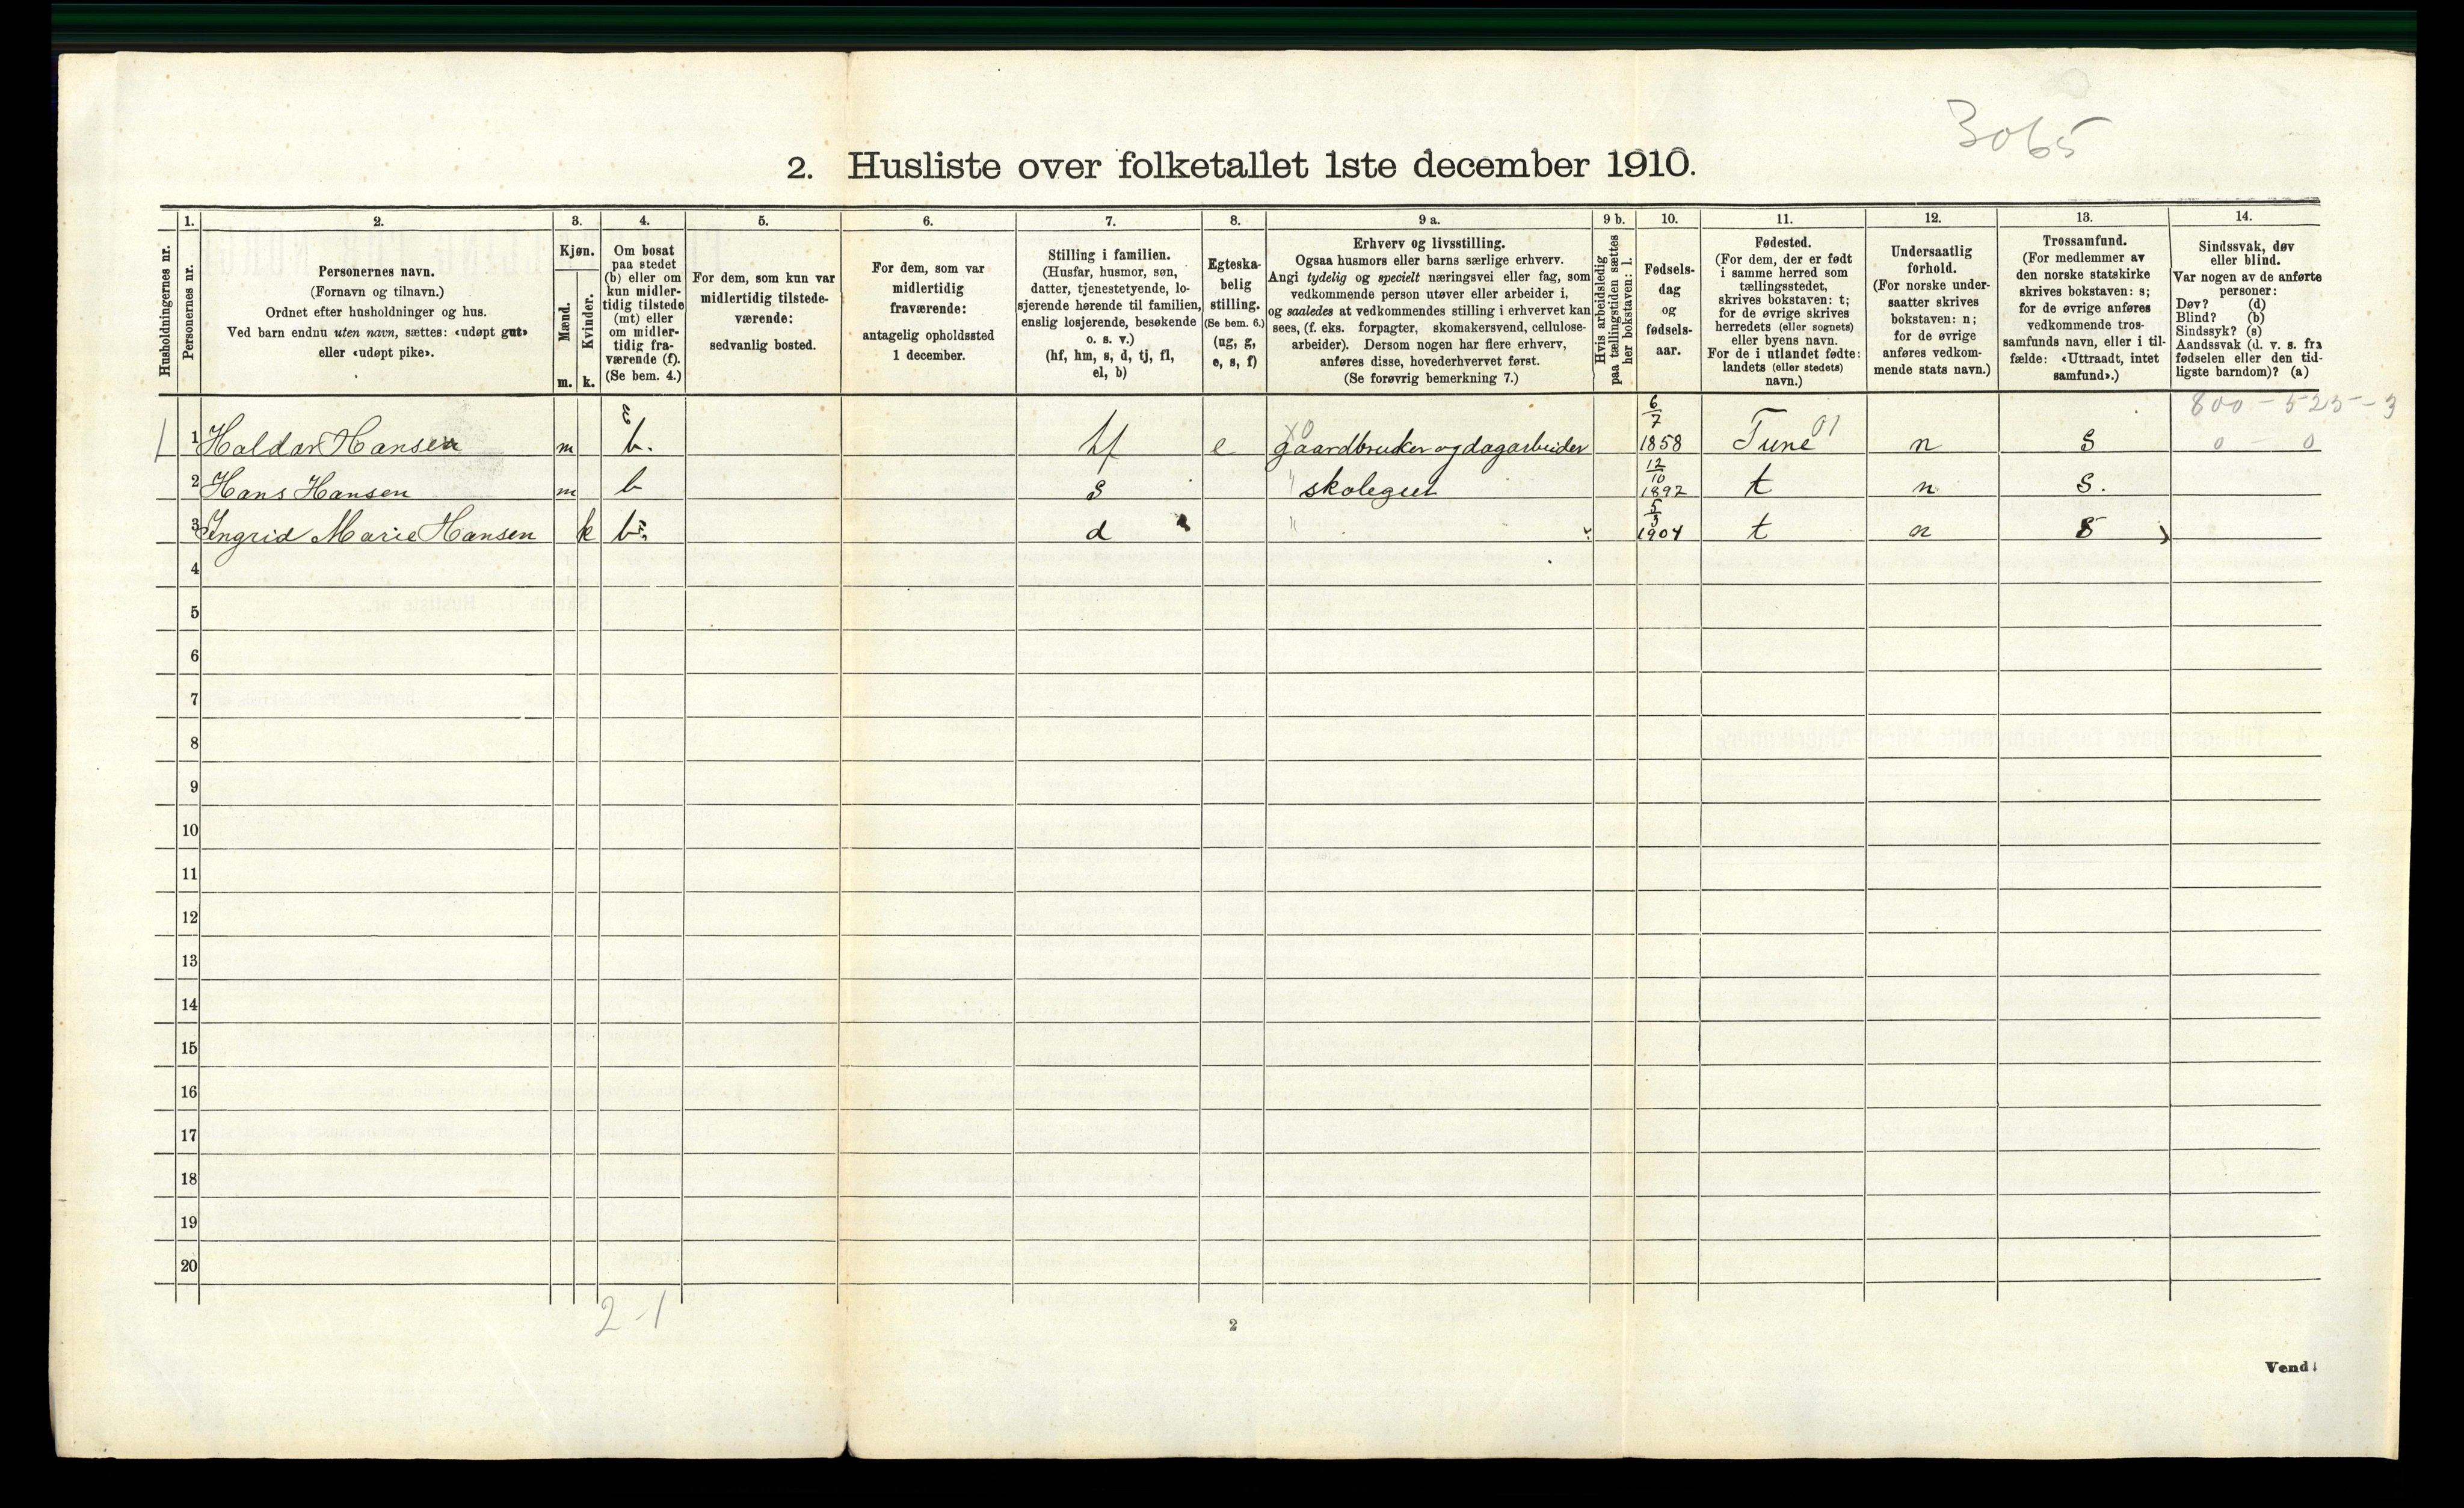 3065
2. Husliste over folketallet 1ste december 1910.
Husholdningernes nr.
1.
Personernes nr.
2.
Personernes navn.
(Fornavn og tilnavn.)
Ordnet efter husholdninger og hus.
Ved barn endnu uten navn, sættes: «udøpt gut»
eller «udøpt pike».
3.
Kjøn.
Mænd.
m.
Kvinder.
k.
4.
Om bosat
paa stedet
(b) eller om
kun midler-
tidig tilstede
(mt) eller
om midler-
tidig fra-
værende (f).
(Se bem. 4.)
5.
For dem, som kun var
midlertidig tilstede-
værende:
sedvanlig bosted.
6.
For dem, som var
midlertidig
fraværende:
antagelig opholdssted
1 december.
7.
Stilling i familien.
(Husfar, husmor, søn,
datter, tjenestetyende, lo-
sjerende hørende til familien,
enslig losjerende, besøkende
o. s. v.)
(hf, hm, s, d, tj, fl,
el, b)
8.
Egteska-
belig
stilling.
(Se bem. 6.)
(ug, g,
e, s, f)
9 a.
Erhverv og livsstilling.
Ogsaa husmors eller barns særlige erhverv.
Angi tydelig og specielt næringsvei eller fag, som
vedkommende person utøver eller arbeider i,
og saaledes at vedkommendes stilling i erhvervet kan
sees, (f. eks. forpagter, skomakersvend, cellulose-
arbeider). Dersom nogen har flere erhverv,
anføres disse, hovederhvervet først.
(Se forøvrig bemerkning 7.)
9 b.
Hvis arbeidsledig
paa tællingstiden sættes
her bokstaven: l.
10.
Fødsels-
dag
og
fødsels-
aar.
11.
Fødested.
(For dem, der er født
i samme herred som
tællingsstedet,
skrives bokstaven: t;
for de øvrige skrives
herredets (eller sognets)
eller byens navn.
For de i utlandet fødte:
landets (eller stedets)
navn.)
12.
Undersaatlig
forhold.
(For norske under-
saatter skrives
bokstaven: n;
for de øvrige
anføres vedkom-
mende stats navn.)
13.
Trossamfund.
(For medlemmer av
den norske statskirke
skrives bokstaven: s;
for de øvrige anføres
vedkommende tros-
samfunds navn, eller i til-
fælde: «Uttraadt, intet
samfund».)
14.
Sindssvak, døv
eller blind.
Var nogen av de anførte
personer:
Døv? (d)
Blind? (b)
Sindssyk? (s)
Aandssvak (d. v. s. fra
fødselen eller den tid-
ligste barndom)? (a)
800-525-3
1 1 Haldar Hansen m b. hf e gaardbruker og dagarbeider 6/7 1858 Tune 01 n S 0 - 0
2 Hans Hansen m b s " skolegut 12/10 1892 t n S.
3 Ingrid Marie Hansen k b d " 5/3 1904 t n S
4
5
6
7
8
9
10
11
12
13
14
15
16
17
18
19
20
2-1
2
Vend!